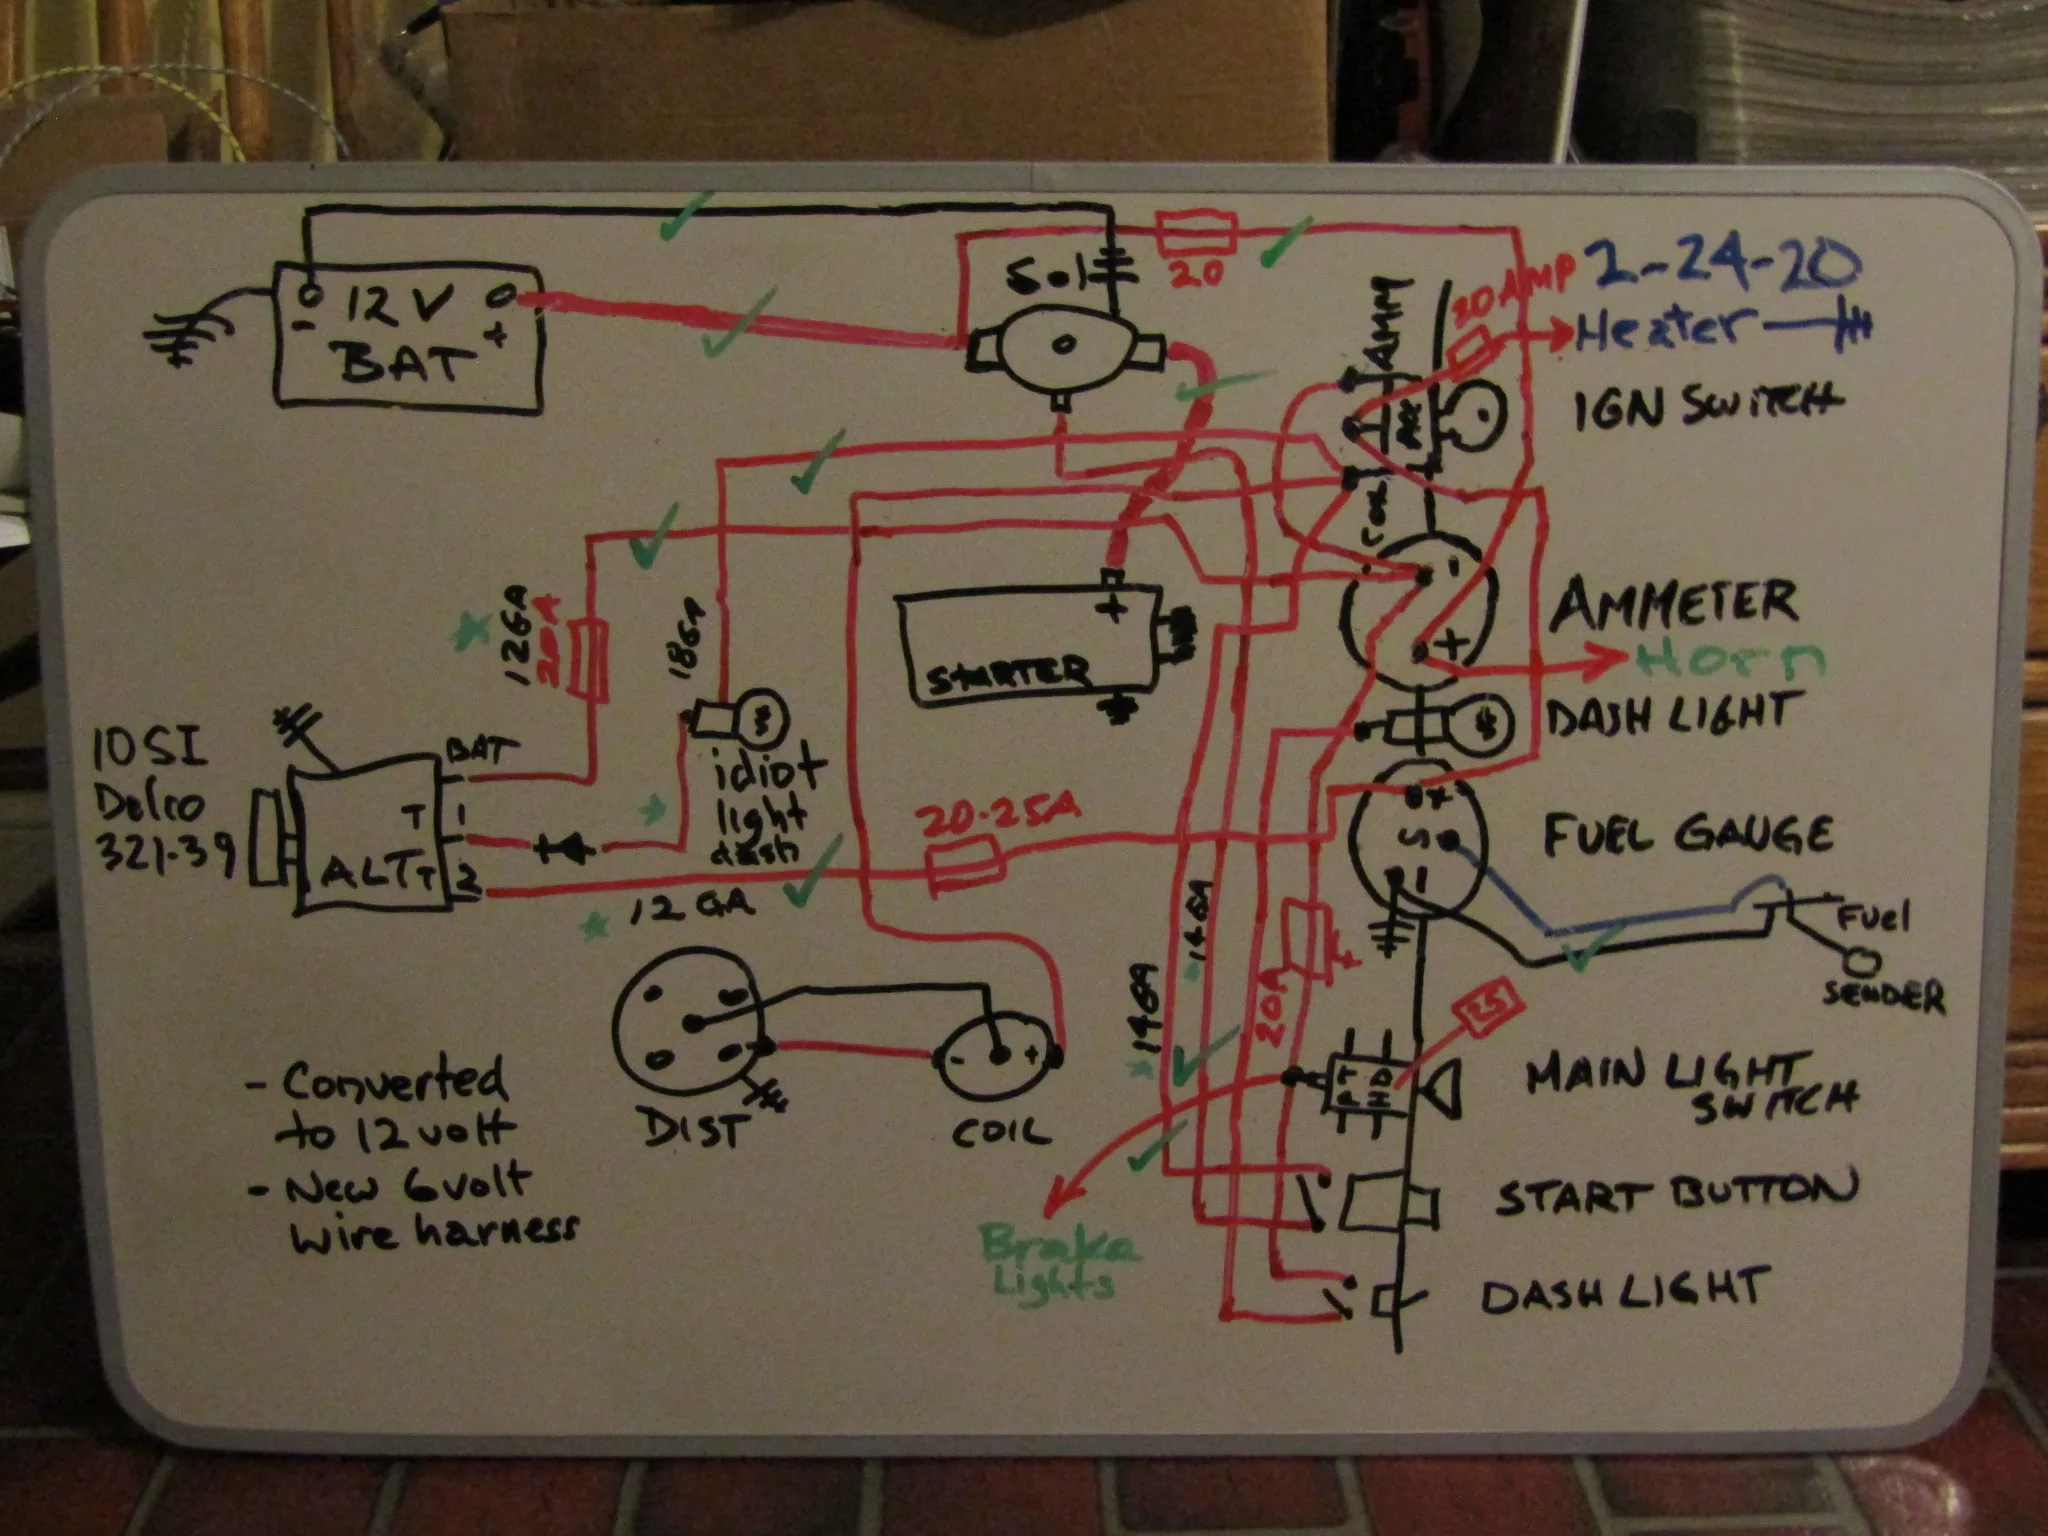 12V
BAT
-
+
Sol
20
AMM
20 AMP
2-24-20
Heater
ACC
IGN SWITCH
COIL
-
+
AMMETER
Horn
DASH LIGHT
12GA
20A
18GA
+
STARTER
10SI
Delco
321-39
BAT
T 1
ALT T 2
idiot
light
dash
20-25A
12 GA
+
S
I
FUEL GAUGE
Fuel
SENDER
14GA
14GA
20A
25
DIST
-
+
COIL
MAIN LIGHT
SWITCH
T
HD
P
H
START BUTTON
DASH LIGHT
Brake
Lights
- Converted
to 12 volt
- New 6volt
wire harness